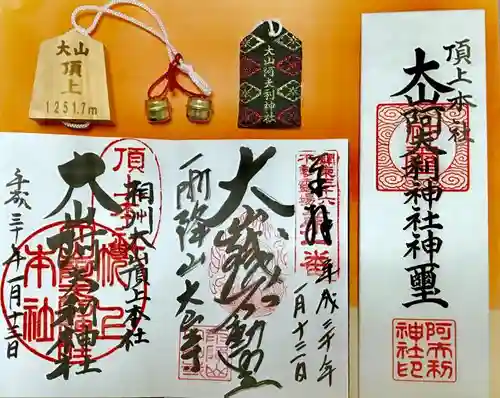 大山
頂上
1251.7m
大山阿夫利神社
頂上本社
大山阿夫利神社神璽
阿夫利
神社印
頂上
相州大山頂上本社
大山阿夫利神社
本社
平成三十年一月十三日
奉拝
平成三十年
一月十三日
大山不動尊
雨降山大山寺